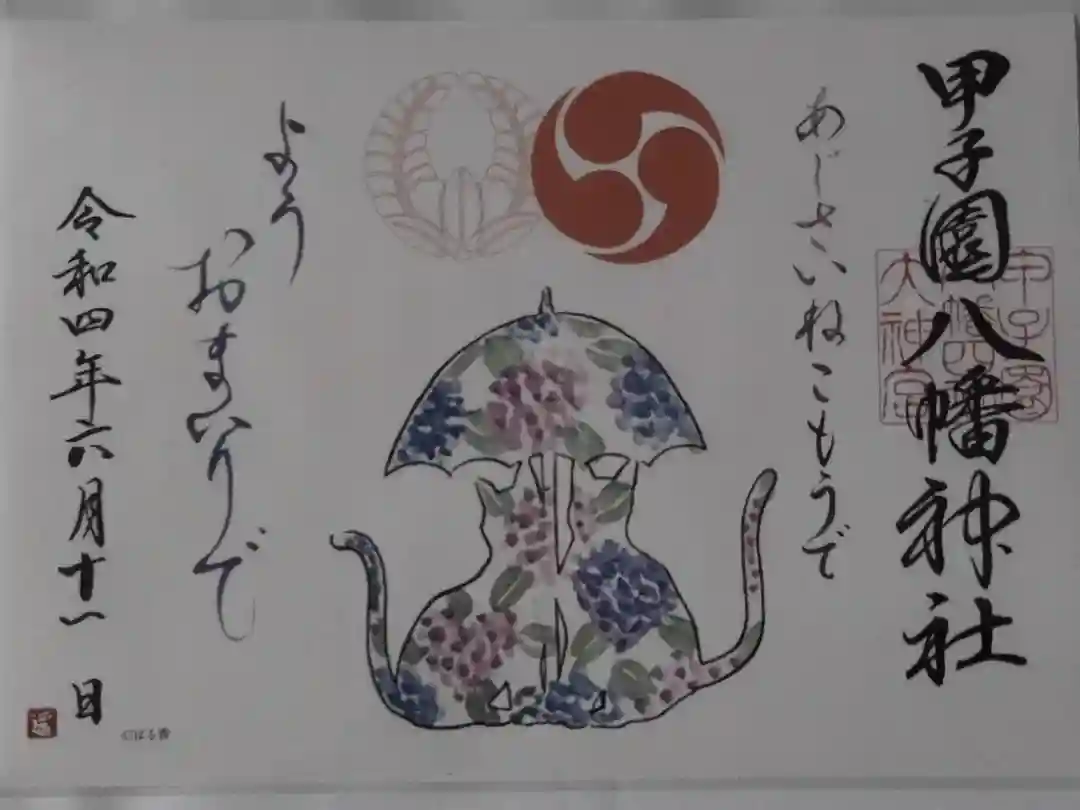 甲子園八幡神社
あじさいねこもうで
よう
おまいりで
令和四年六月十一日
甲子園
大神宮